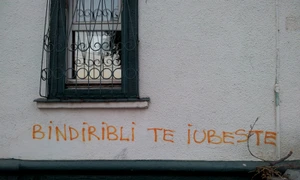 BINDIRIBLI TE IUBEȘTE